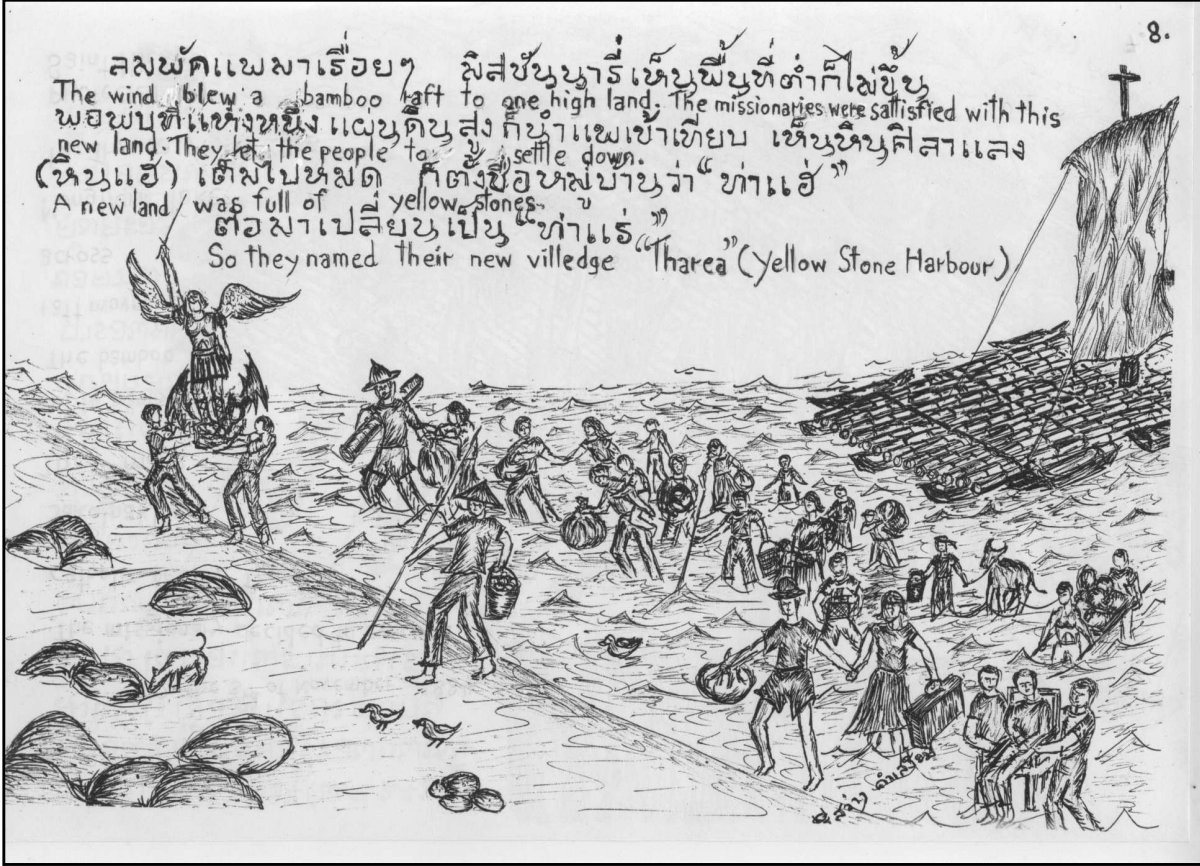 8.
ลมพัดแพมาเรื่อยๆ มิสชันนารี่เห็นพื้นที่ต่ำก็ไม่ขึ้น
The wind blew a bamboo raft to one high land. The missionaries were sattisfied with this
พอพบที่แห่งหนึ่ง แผ่นดินสูง ก็นำแพเข้าเทียบ เห็นหินศิลาแลง
new land. They let the people to settle down.
(หินแฮ่) เต็มไปหมด ก็ตั้งชื่อหมู่บ้านว่า "ท่าแฮ่"
A new land was full of yellow stones.
ต่อมาเปลี่ยนเป็น "ท่าแร่"
So they named Their new villedge "Tharea" (Yellow Stone Harbour)
สว่าง